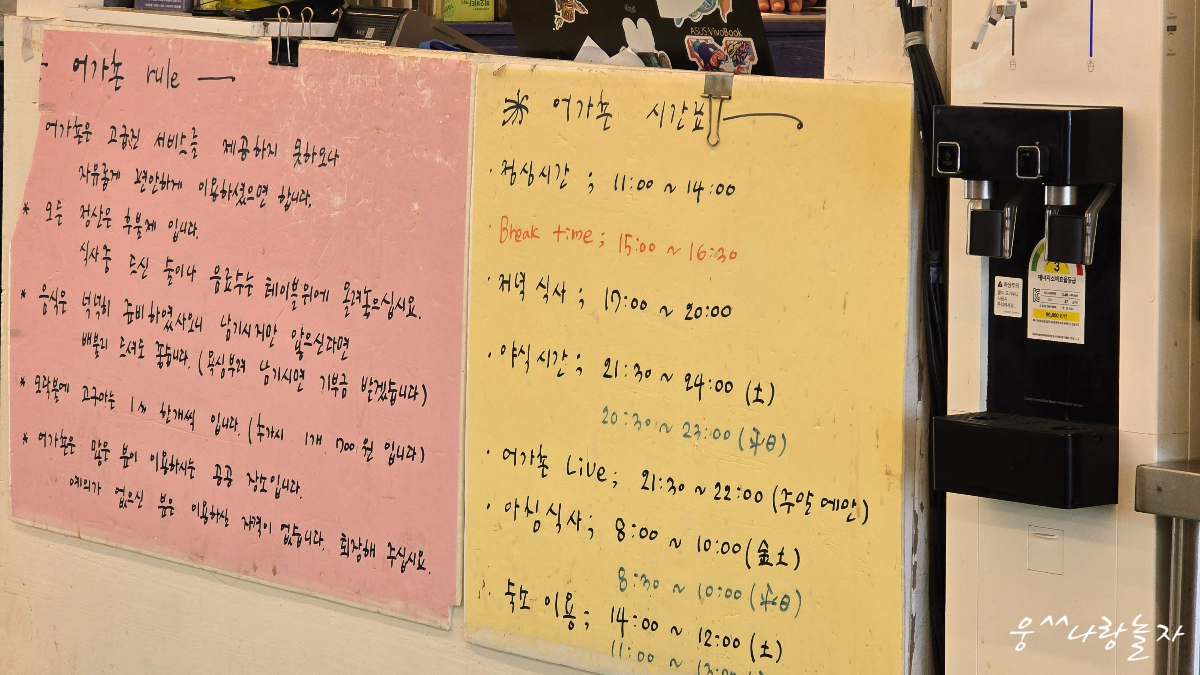 어가촌 rule
어가촌은 고급진 서비스를 제공하지 못하오나
자유롭게 편안하게 이용하셨으면 합니다.
* 모든 정산은 후불제 입니다.
식사중 드신 술이나 음료수는 테이블위에 올려놓으십시요.
* 음식은 넉넉히 준비하였사오니 남기시지만 않으신다면
배불리 드셔도 좋습니다. (욕심부려 남기시면 기부금 받겠습니다)
* 모닥불에 고구마는 1人 한개씩 입니다. (추가시 1개 700원 입니다)
* 어가촌은 많은 분이 이용하시는 공공 장소입니다.
예의가 없으신 분은 이용하실 자격이 없습니다. 퇴장해 주십시요.
어가촌 시간표
· 정상시간 ; 11:00 ~ 14:00
· Break time ; 15:00 ~ 16:30
· 저녁 식사 ; 17:00 ~ 20:00
· 야식 시간 ; 21:30 ~ 24:00 (土)
20:30 ~ 23:00 (平日)
· 어가촌 Live ; 21:30 ~ 22:00 (주말에만)
· 아침식사 ; 8:00 ~ 10:00 (金土)
8:30 ~ 10:00 (平日)
· 숙소 이용 ; 14:00 ~ 12:00 (土)
11:00 ~
ASUS VivoBook
3
에너지소비효율등급
웅^^나랑놀자